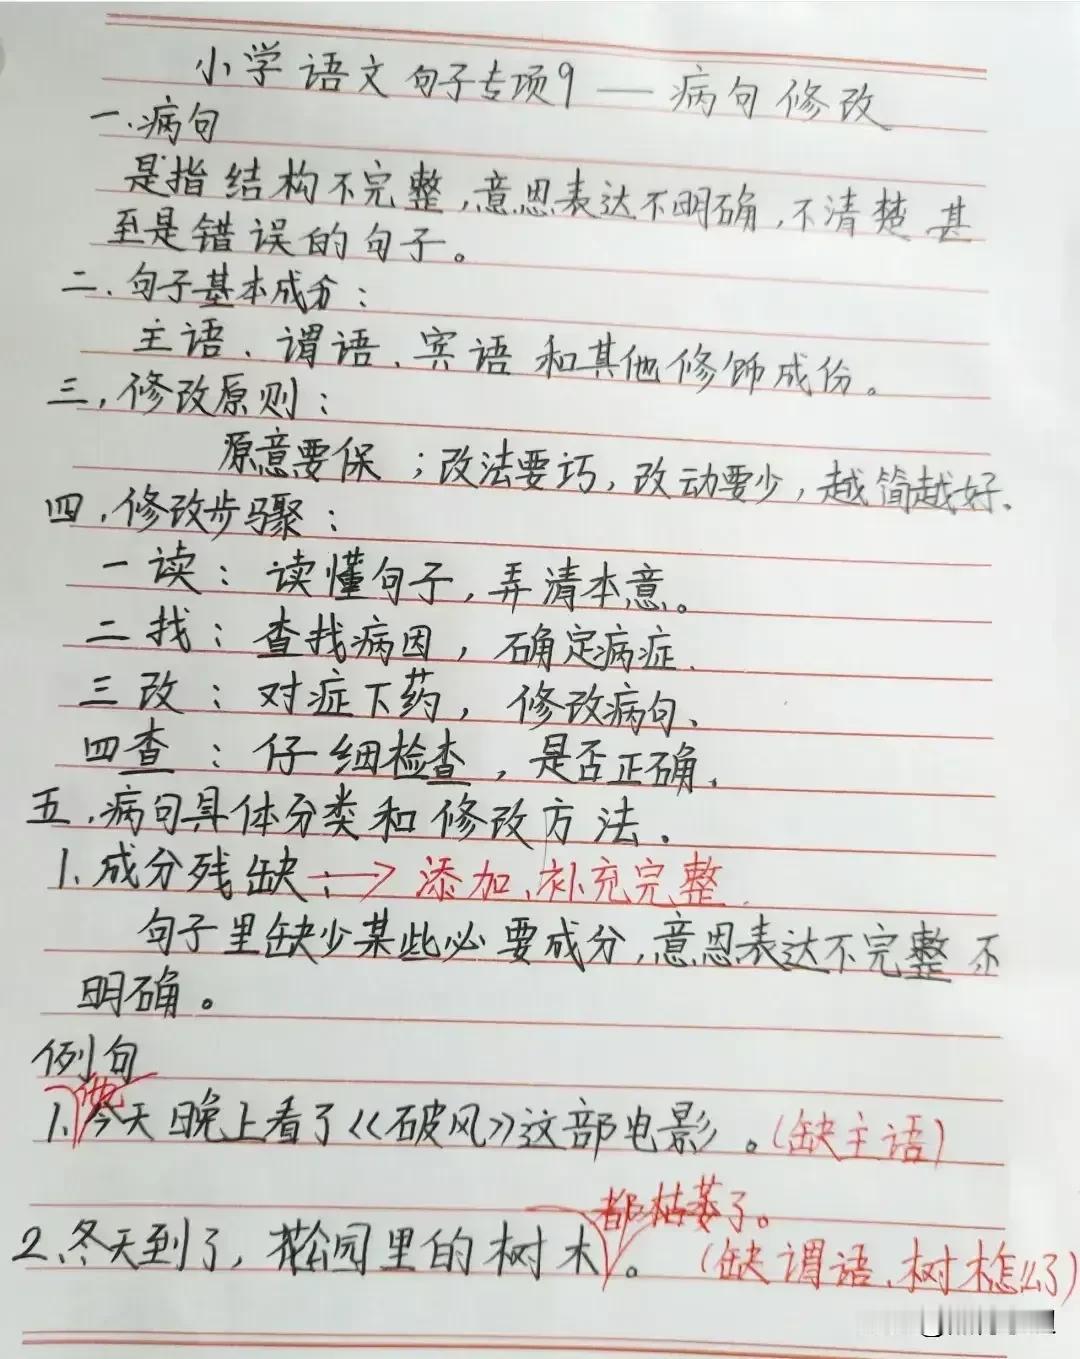 小学语文句子专项9——病句修改
一.病句
是指结构不完整,意思表达不明确,不清楚甚
至是错误的句子。
二.句子基本成分:
主语、谓语、宾语和其他修饰成份。
三,修改原则:
原意要保;改法要巧,改动要少,越简越好.
四,修改步骤:
一读:读懂句子,弄清本意。
二找:查找病因,确定病症.
三改:对症下药,修改病句、
四查:仔细检查,是否正确.
五,病句具体分类和修改方法.
1.成分残缺:→添加、补充完整.
句子里缺少某些必要成分,意思表达不完整不
明确。
例句
他
1、今天晚上看了《破风》这部电影。(缺主语)
都枯萎了。
2、冬天到了,花公园里的树木。(缺谓语、树木怎么了)